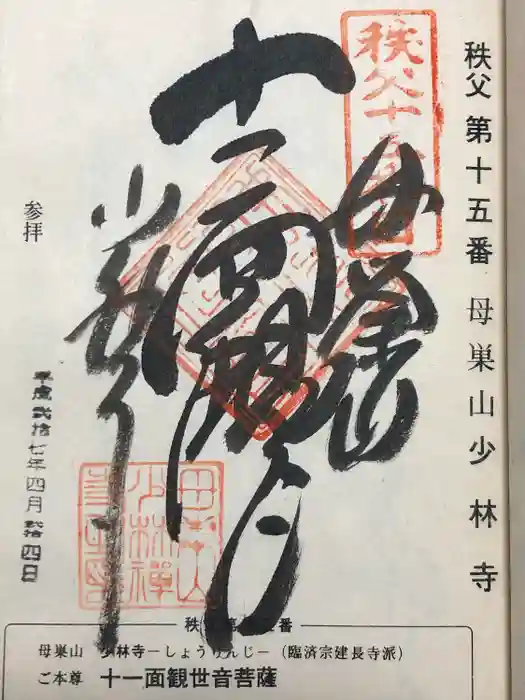 秩父 第十五番 母巣山少林寺
秩父十五
母巣山
十一面観音
少林寺
参拝
平成弐拾七年四月弐拾四日
秩父第十五番
母巣山 少林寺－しょうりんじ－（臨済宗建長寺派）
ご本尊 十一面観世音菩薩